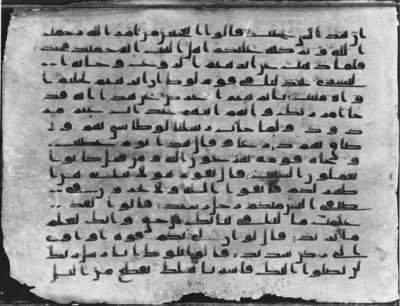 ان هذا لشى عجيب قالوا اتعجبين من امر الله رحمت
الله وبركته عليكم اهل البيت انه حميد مجيد
فلما ذهب عن ابرهيم الروع وجاته ا
لبشرى يجدلنا في قوم لوط ان ابرهيم لحليم ا
وه منيب يابرهيم اعرض عن هذا انه قد
جا امر ربك وانهم اتيهم عذاب غير مر
دود ولما جات رسلنا لوطا سى بهم و
ضاق بهم ذرعا وقال هذا يوم عصيب
وجاه قومه يهرعون اليه ومن قبل كانوا
يعملون السيات قال يقوم هولا بناتي هن ا
طهر لكم فاتقوا الله ولا تخزون في
ضيفي اليس منكم رجل رشيد قالوا لقد
علمت ما لنا في بناتك من حق وانك لتعلم
ما نريد قال لو ان لي بكم قوة او اوي
الى ركن شديد قالوا يلوط انا رسل ربك
لن يصلوا اليك فاسر باهلك بقطع من اليل